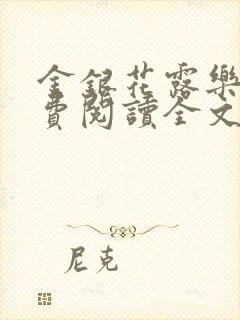 金銀花露樂
費閱讀全文
尼克